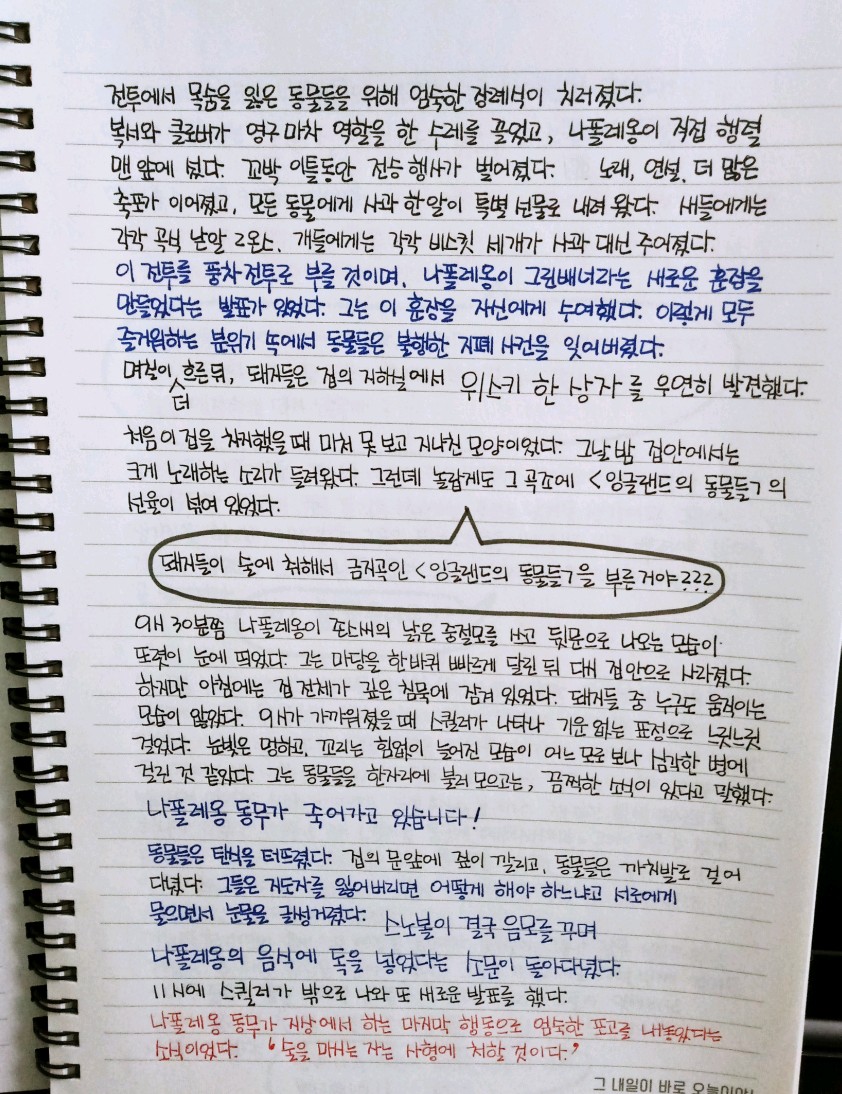 전투에서 목숨을 잃은 동물들을 위해 엄숙한 장례식이 치러졌다.
복서와 클로버가 영구마차 역할을 한 수레를 끌었고, 나폴레옹이 직접 행렬
맨 앞에 섰다. 꼬박 이틀동안 전승 행사가 벌어졌다. 노래, 연설, 더 많은
축포가 이어졌고, 모든 동물에게 사과 한알이 특별 선물로 내려 왔다. 새들에게는
각각 곡식 낟알 2온스, 개들에게는 각각 비스킷 세개가 사과 대신 주어졌다.
이 전투를 풍차전투로 부를 것이며, 나폴레옹이 그린배너라는 새로운 훈장을
만들었다는 발표가 있었다. 그는 이 훈장을 자신에게 수여했다. 이렇게 모두
즐거워하는 분위기 속에서 동물들은 불행한 지폐 사건을 잊어버렸다.
며칠이 더 흐른뒤, 돼지들은 집의 지하실에서 위스키 한 상자를 우연히 발견했다.
처음 이 집을 차지했을 때 미처 못 보고 지나친 모양이었다. 그날 밤 집안에서는
크게 노래하는 소리가 들려왔다. 그런데 놀랍게도 그 곡조에 <잉글랜드의 동물들>의
선율이 섞여 있었다.
돼지들이 술에 취해서 금지곡인 <잉글랜드의 동물들>을 부른거야???
9시 30분쯤 나폴레옹이 존스씨의 낡은 중절모를 쓰고 뒷문으로 나오는 모습이
또렷이 눈에 띄었다. 그는 마당을 한바퀴 빠르게 달린 뒤 다시 집안으로 사라졌다.
하지만 아침에는 집 전체가 깊은 침묵에 잠겨 있었다. 돼지들 중 누구도 움직이는
모습이 않았다. 9시가 가까워졌을 때 스퀼러가 나타나 기운 없는 표정으로 느릿느릿
걸었다. 눈빛은 멍하고, 꼬리는 힘없이 늘어진 모습이 어느 모로 보나 심각한 병에
걸린 것 같았다. 그는 동물들을 한자리에 불러 모으고는, 끔찍한 소식이 있다고 말했다.
나폴레옹 동무가 죽어가고 있습니다!
동물들은 탄식을 터뜨렸다. 집의 문앞에 짚이 깔리고, 동물들은 까치발로 걸어
다녔다. 그들은 지도자를 잃어버리면 어떻게 해야 하느냐고 서로에게
물으면서 눈물을 글썽거렸다. 스노볼이 결국 음모를 꾸며
나폴레옹의 음식에 독을 넣었다는 소문이 돌아다녔다.
11시에 스퀼러가 밖으로 나와 또 새로운 발표를 했다.
나폴레옹 동무가 지상에서 하는 마지막 행동으로 엄숙한 포고를 내놓았다는
소식이었다. '술을 마시는 자는 사형에 처할 것이다.'
그 내일이 바로 오늘이야!